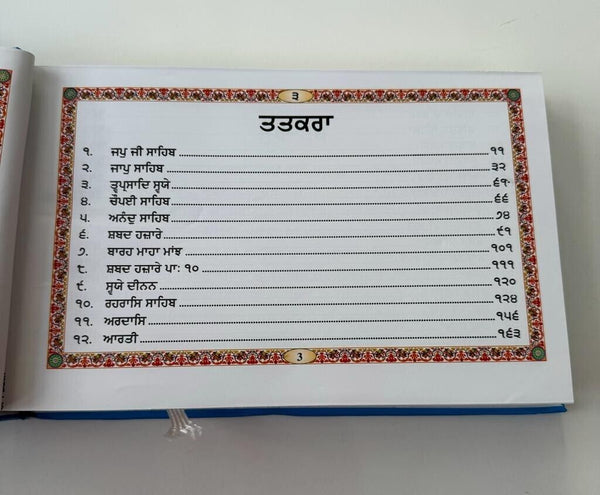 ੩
ਤਤਕਰਾ
੧. ਜਪੁ ਜੀ ਸਾਹਿਬ ੧੧
੨. ਜਾਪੁ ਸਾਹਿਬ ੩੨
੩. ਤ੍ਵਪ੍ਰਸਾਦਿ ਸ੍ਵਯੇ ੬੧
੪. ਚੌਪਈ ਸਾਹਿਬ ੬੬
੫. ਅਨੰਦੁ ਸਾਹਿਬ ੭੪
੬. ਸ਼ਬਦ ਹਜ਼ਾਰੇ ੯੧
੭. ਬਾਰਹ ਮਾਹਾ ਮਾਂਝ ੧੦੧
੮. ਸ਼ਬਦ ਹਜ਼ਾਰੇ ਪਾ: ੧੦ ੧੧੧
੯. ਸ੍ਵਯੇ ਦੀਨਨ ੧੨੦
੧੦. ਰਹਰਾਸਿ ਸਾਹਿਬ ੧੨੪
੧੧. ਅਰਦਾਸਿ ੧੫੬
੧੨. ਆਰਤੀ ੧੬੩
3